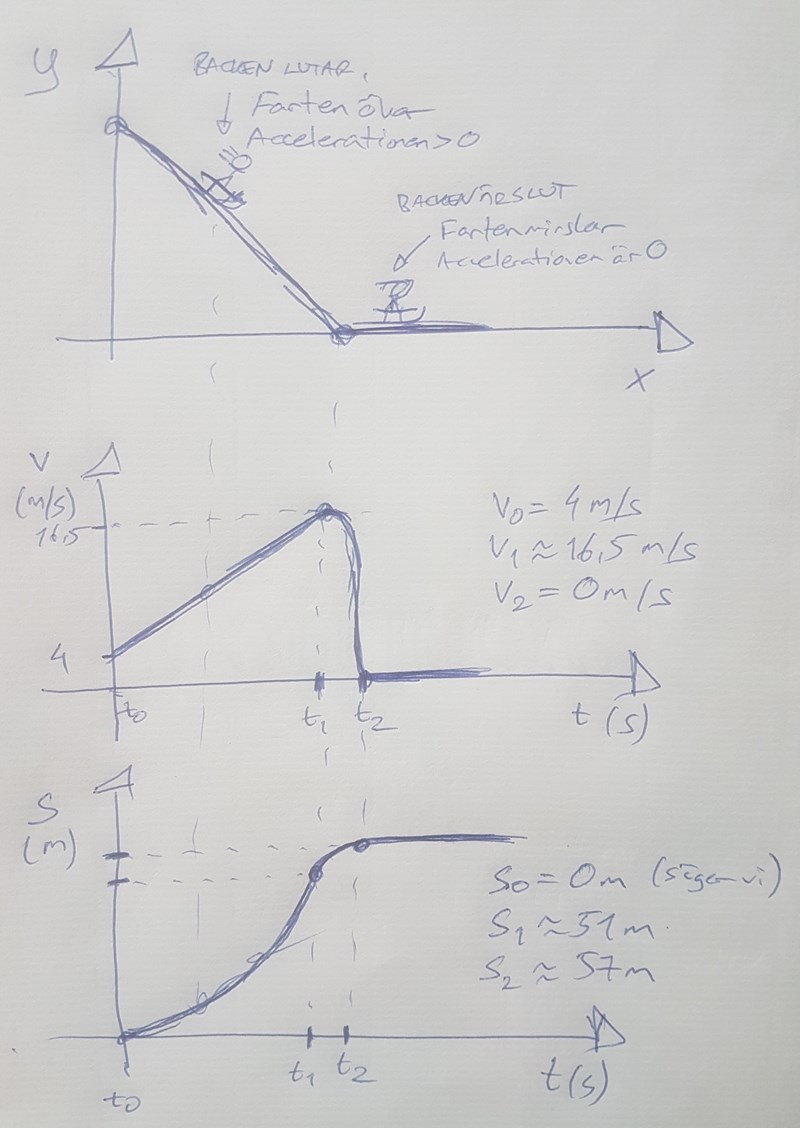 y
BACKEN LUTAR,
Farten ökar
Accelerationen > 0
BACKEN ÄR SLUT
Farten minskar
Accelerationen är 0
x
V
(m/s)
16,5
4
t₀
t₁
t₂
t (s)
V₀ = 4 m/s
V₁ ≈ 16,5 m/s
V₂ = 0 m/s
S
(m)
S₀ = 0m (säger vi)
S₁ ≈ 51 m
S₂ ≈ 57 m
t₀
t₁
t₂
t (s)